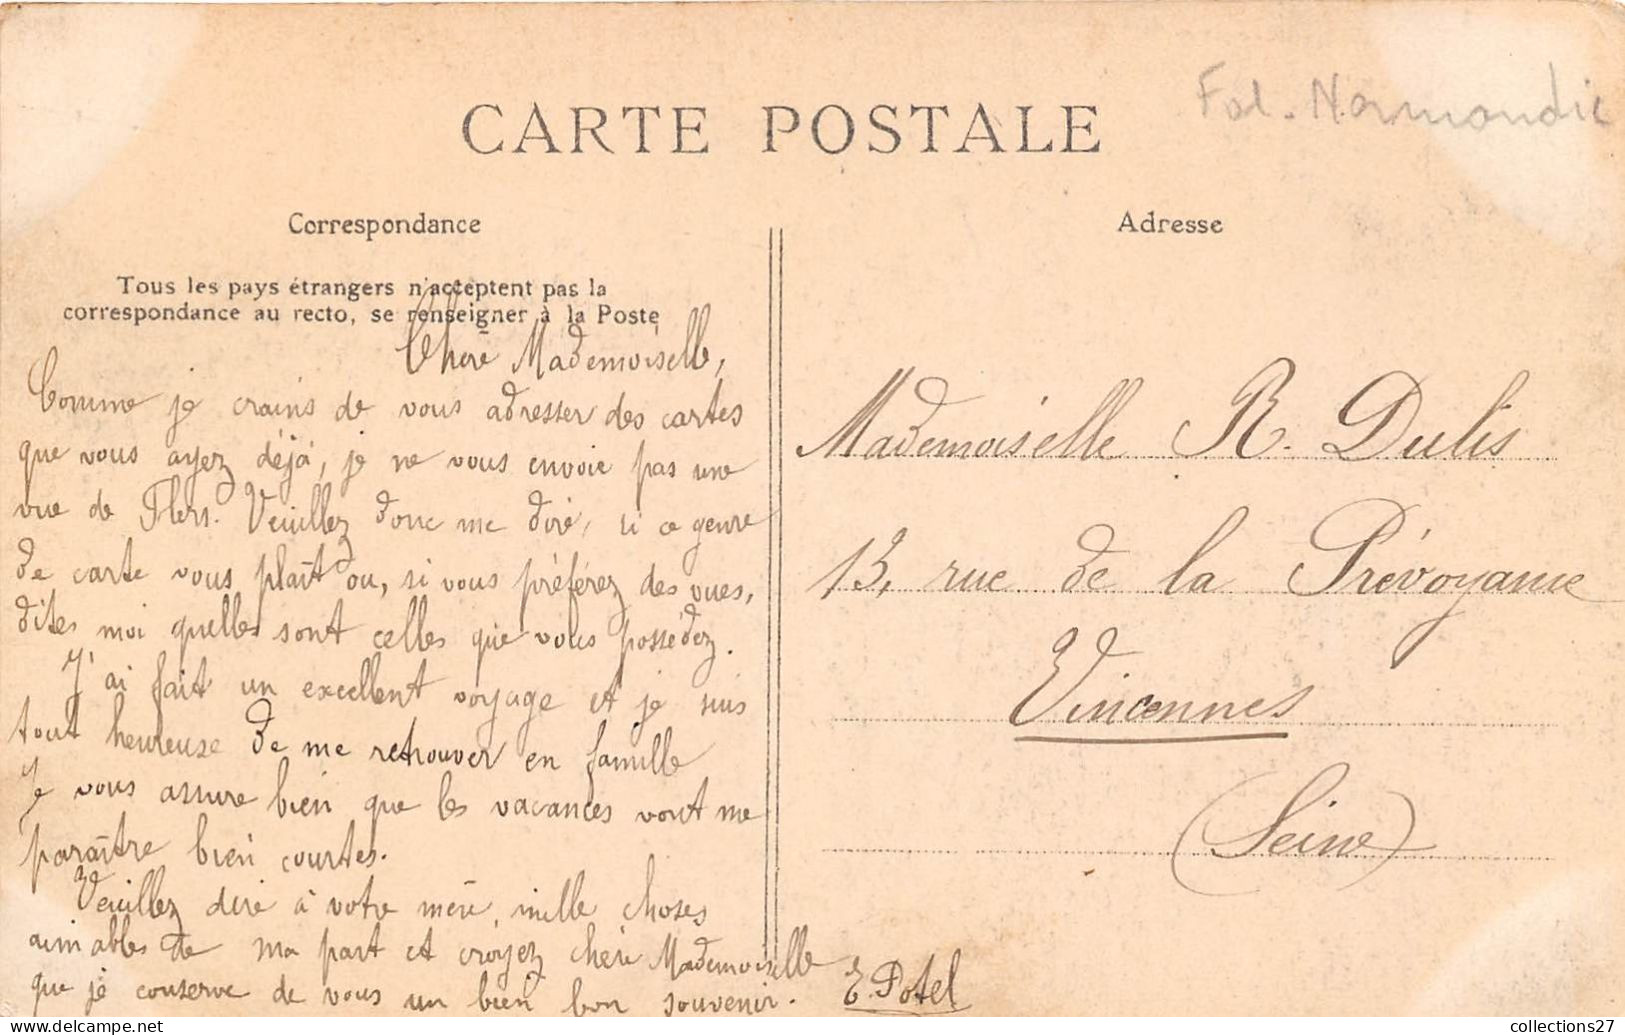 Fol. Normandie
CARTE POSTALE
Correspondance
Tous les pays étrangers n'acceptent pas la
correspondance au recto, se renseigner à la Poste
Chère Mademoiselle,
Comme je crains de vous adresser des cartes
que vous ayez déjà, je ne vous envoie pas une
vue de Flers. Veuillez donc me dire, si ce genre
de carte vous plaît ou, si vous préférez des vues,
dites moi quelles sont celles que vous possédez.
J'ai fait un excellent voyage et je suis
tout heureuse de me retrouver en famille
Je vous assure bien que les vacances vont me
paraître bien courtes.
Veuillez dire à votre mère, mille choses
aimables de ma part et croyez chère Mademoiselle
que je conserve de vous un bien bon souvenir. E. Potel
Adresse
Mademoiselle R. Dulis
13, rue de la Prévoyance
Vincennes
(Seine)
collections27